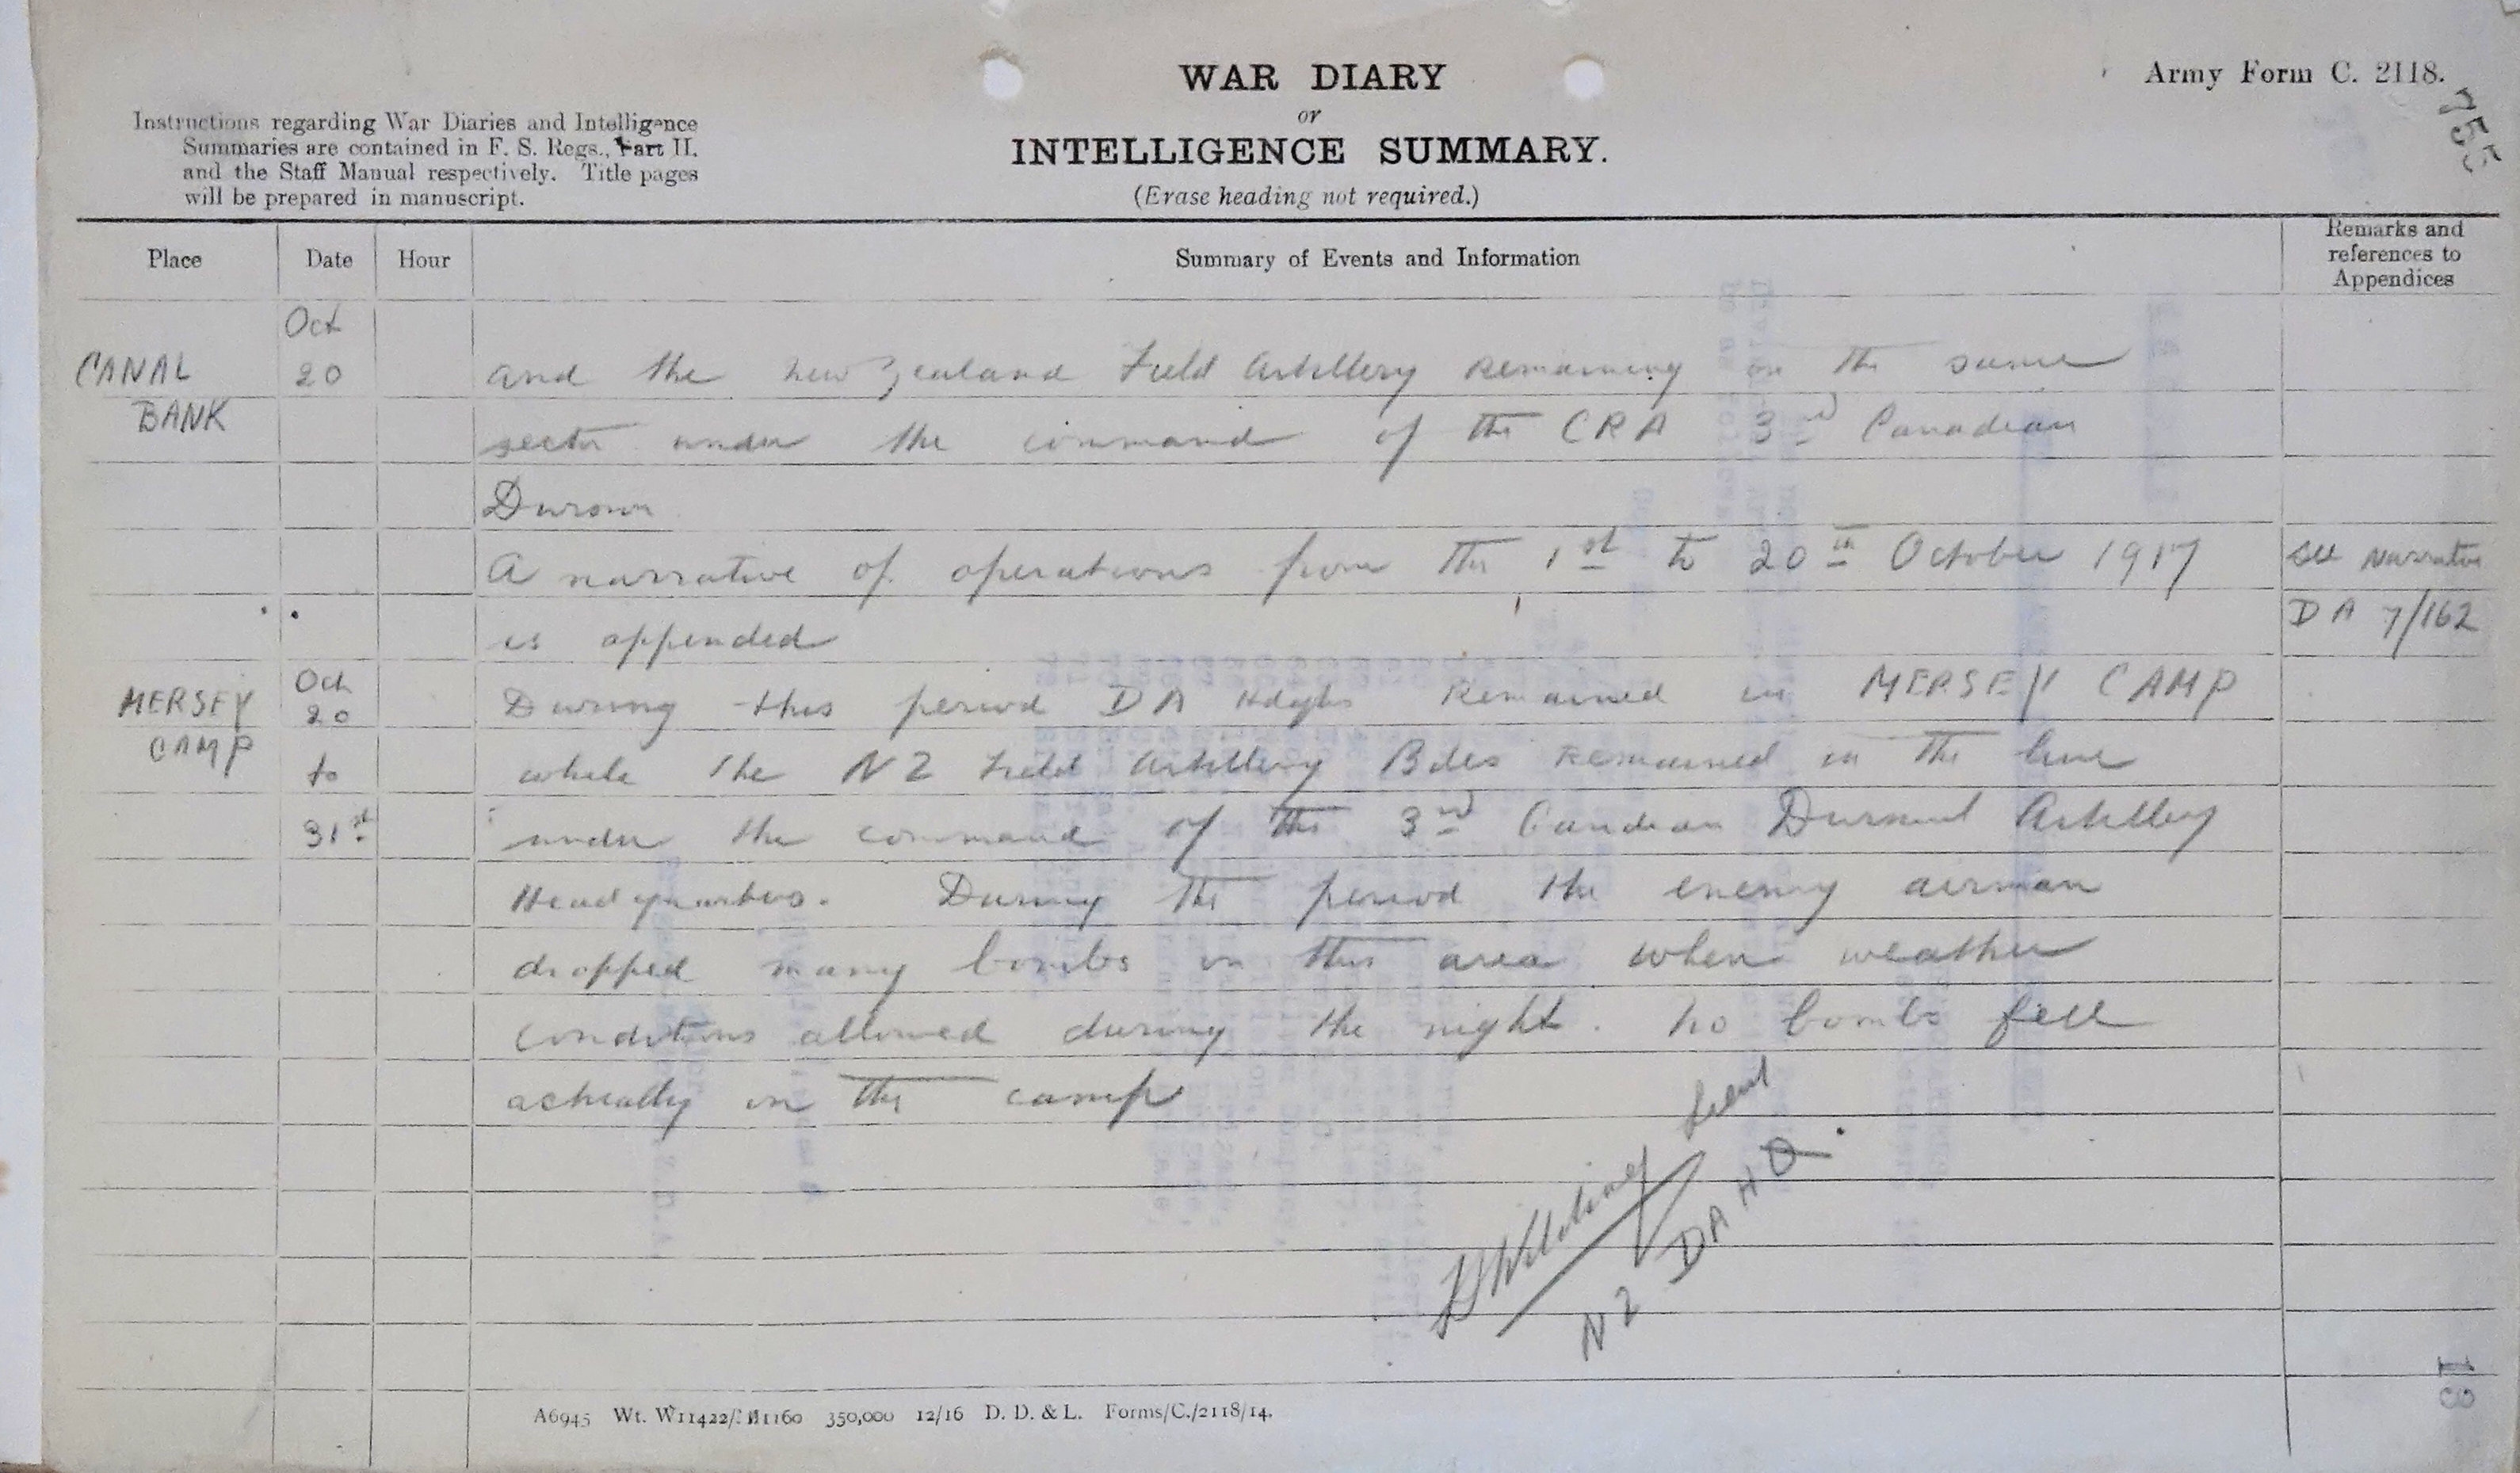 WAR DIARY
or
INTELLIGENCE SUMMARY.
(Erase heading not required.)
Army Form C. 2118.
755
Instructions regarding War Diaries and Intelligence
Summaries are contained in F. S. Regs., Part II.
and the Staff Manual respectively. Title pages
will be prepared in manuscript.
Place Date Hour Summary of Events and Information Remarks and references to Appendices
Oct
CANAL 20 and the New Zealand Field Artillery remaining in the same
BANK sector under the command of the CRA 3rd Canadian
Division
A narrative of operations from the 1st to 20th October 1917 see Narrative
is appended DA 7/162
MERSEY Oct 20 During this period DA Hdqrs remained in MERSEY CAMP
CAMP to while the NZ Field Artillery Bdes remained in the line
31st under the command of the 3rd Candian Divisional Artillery
Headquarters. During the period the enemy airman
dropped many bombs in this area when weather
conditions allowed during the night. No bombs fell
actually in the camp
Lieut
NZ DAHQ.
A6945 Wt. W11422/M1160 350,000 12/16 D. D. & L. Forms/C./2118/14.
18